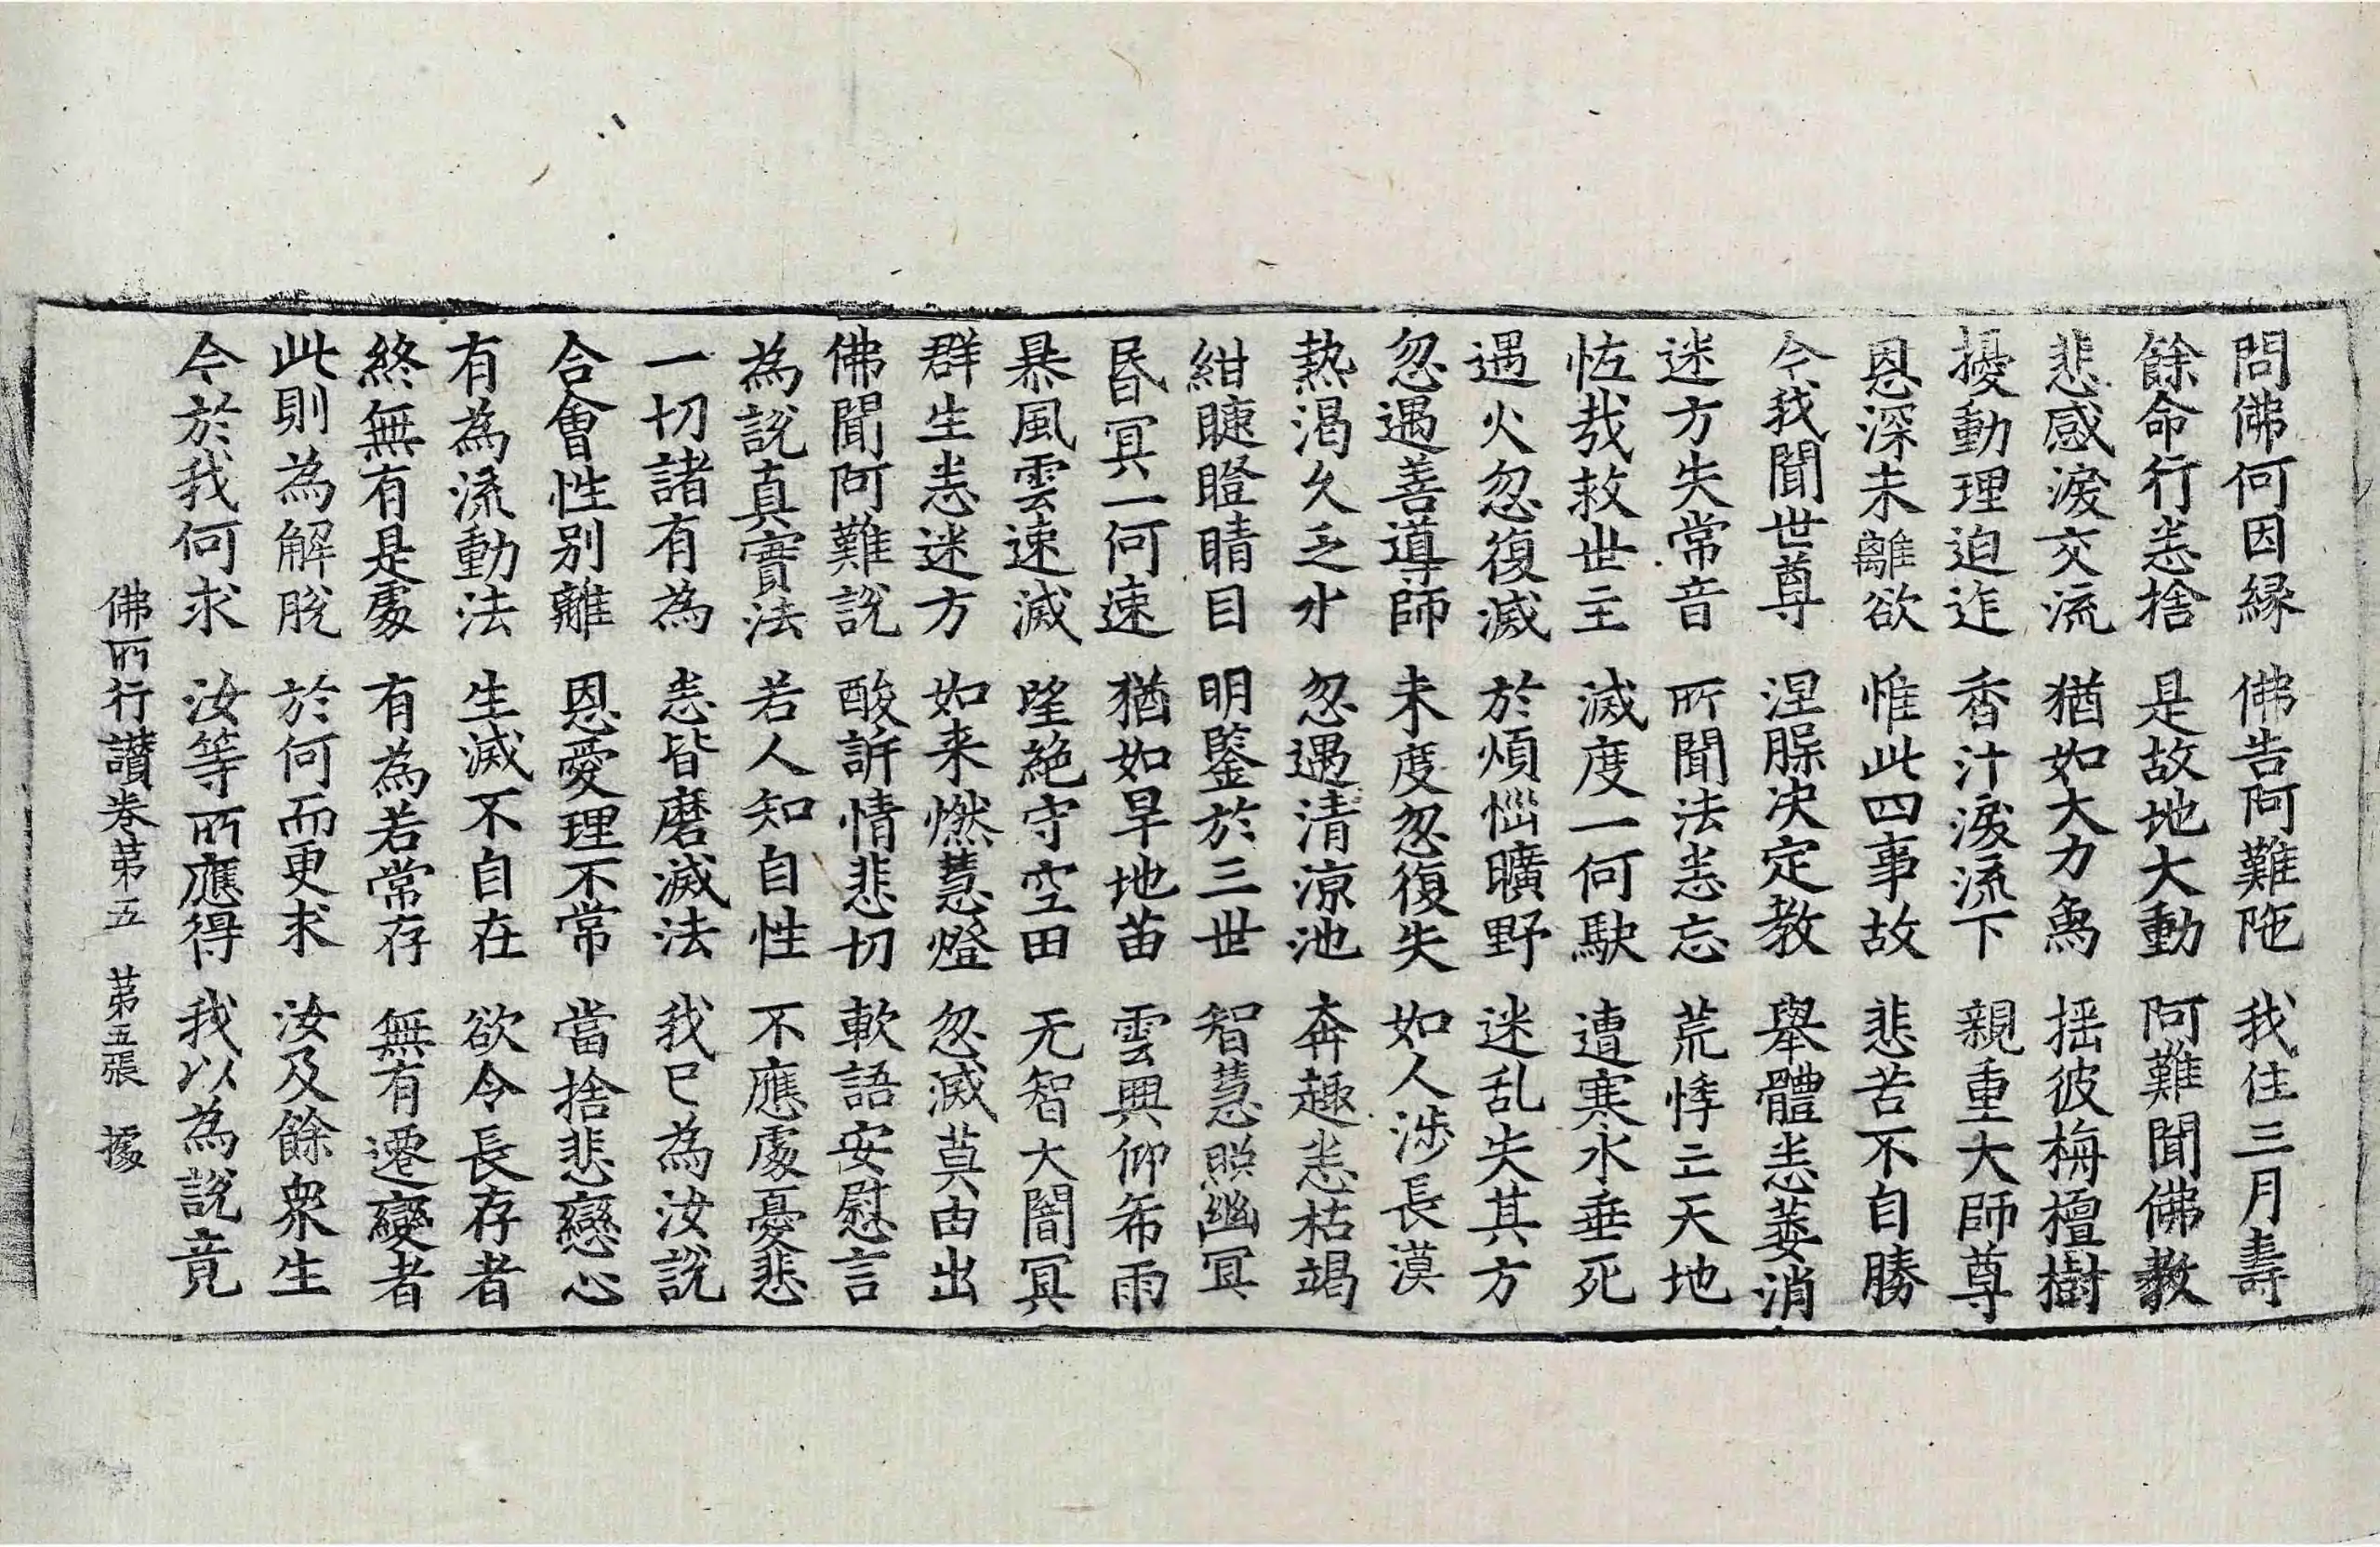 問佛何因緣 佛告阿難陁 我住三月壽
餘命行悉捨 是故地大動 阿難聞佛教
悲感淚交流 猶如大力象 揺彼栴檀樹
擾動理迫迮 香汁淚流下 親重大師尊
恩深未離欲 惟此四事故 悲苦不自勝
今我聞世尊 涅槃决定教 舉體悉萎消
迷方失常音 所聞法悉忘 荒悸亡天地
恠哉救世主 滅度一何駃 遭寒水垂死
遇火忽復滅 於煩惱曠野 迷乱失其方
忽遇善導師 未度忽復失 如人涉長漠
熱渴久乏水 忽遇清涼池 奔趣悉枯竭
紺睫瞪睛目 明鑒於三世 智慧照幽冥
昬冥一何速 猶如旱地苗 雲興仰希雨
暴風雲速滅 望絶守空田 无智大闇冥
群生悉迷方 如来燃慧燈 忽滅莫由出
佛聞阿難說 酸訴情悲切 軟語安慰言
為說真實法 若人知自性 不應處憂悲
一切諸有為 悉皆磨滅法 我已為汝說
合會性別離 恩愛理不常 當捨悲戀心
有為流動法 生滅不自在 欲令長存者
終無有是處 有為若常存 無有遷變者
此則為解脫 於何而更求 汝及餘衆生
今於我何求 汝等所應得 我以為說竟
佛所行讚卷苐五 苐五張 據